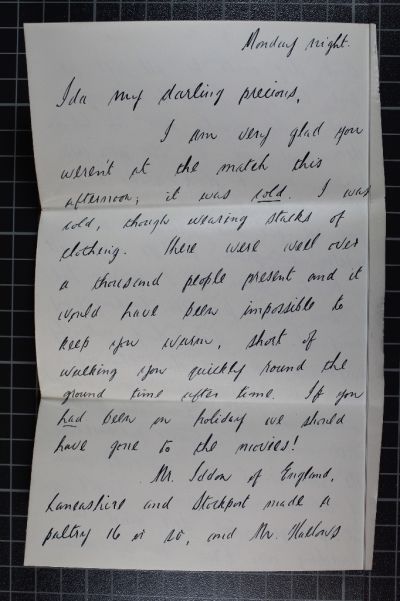 Monday night.
Ida my darling precious,
I am very glad you
weren't at the match this
afternoon; it was cold. I was
cold, though wearing stacks of
clothing. There were well over
a thousand people present and it
would have been impossible to
keep you warm, short of
walking you quickly round the
ground time after time. If you
had been on holiday we should
have gone to the movies!
Mr. Iddon of England,
Lancashire and Stockport made a
paltry 16 or so, and Mr. Hallows